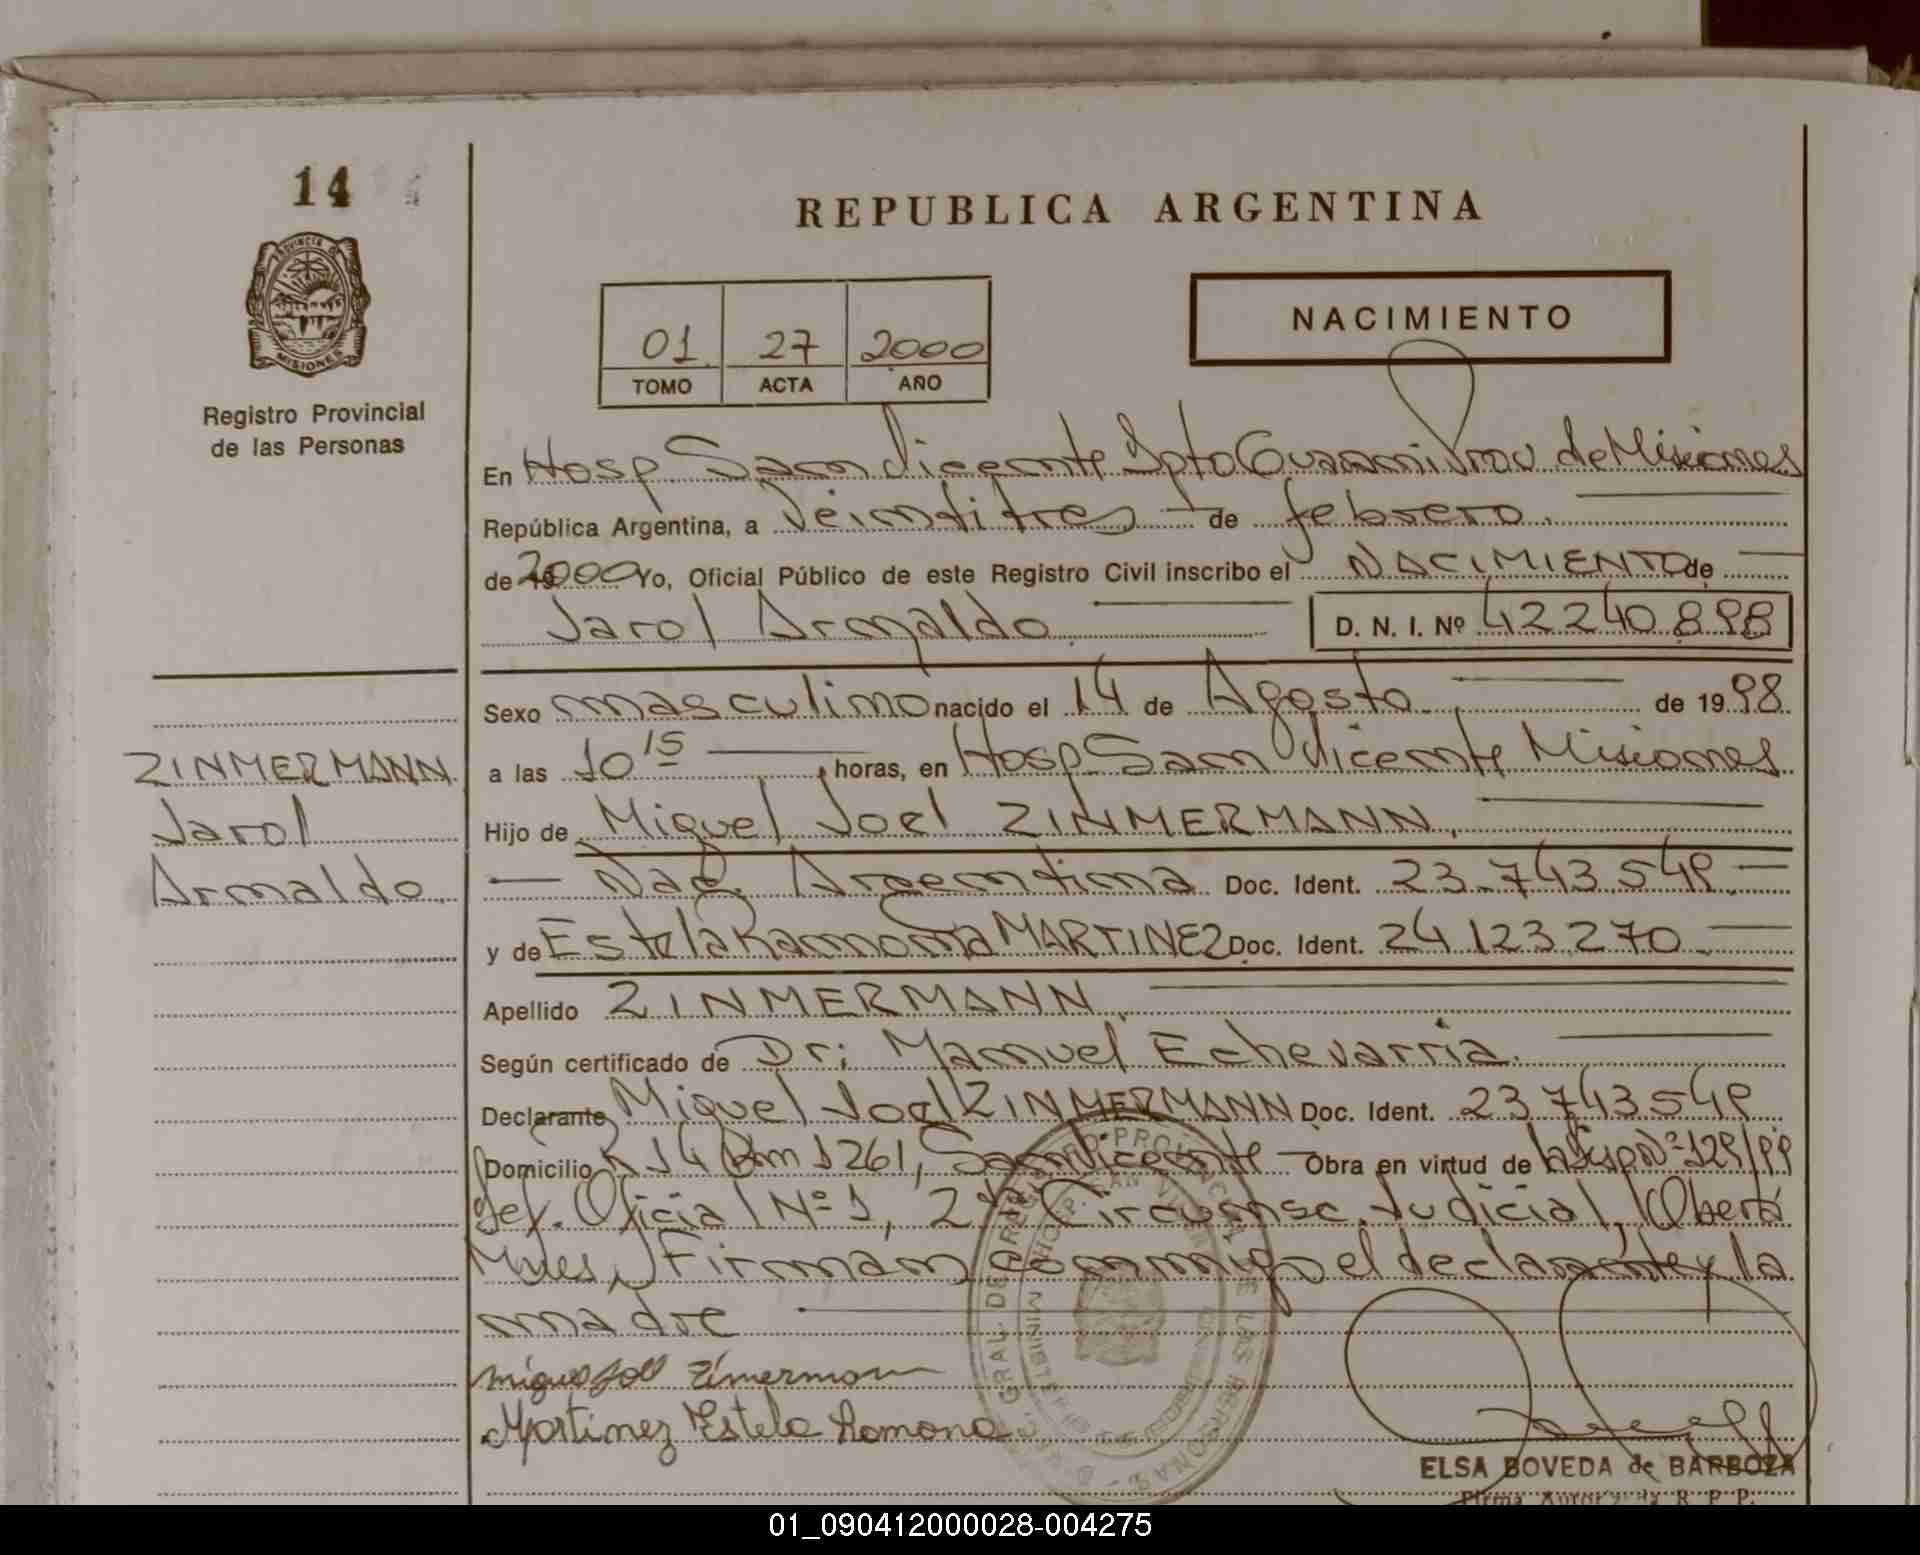 14
REPUBLICA ARGENTINA
PROVINCIA DE
MISIONES
Registro Provincial
de las Personas
NACIMIENTO
01 27 2000
TOMO ACTA AÑO
En Hosp San Vicente Dpto Guarani Prov de Misiones
República Argentina, a Veintitres de febrero
de 2000 Yo, Oficial Público de este Registro Civil inscribo el NACIMIENTO de
Jarol Arnaldo D. N. I. Nº 42240.898
Sexo masculino nacido el 14 de Agosto de 1998
a las 10 15 horas, en Hosp San Vicente Misiones
ZINMERMANN
Jarol
Arnaldo
Hijo de Miguel Joel ZINMERMANN
Nac. Argentina Doc. Ident. 23.743549
y de Estela Ramona MARTINEZ Doc. Ident. 24123270
Apellido ZINMERMANN
Según certificado de Dr: Manuel Echevarria.
Declarante Miguel Joel ZINMERMANN Doc. Ident. 23743549
Domicilio R 14 Km 1261, San Vicente Obra en virtud de Nº 129/99
Def. Oficial Nº 1, 2da Circunsc. Judicial, Obera
Mnes, Firman conmigo el declarante y la
madre
Miguel Joel Zimermann
Martinez Estela Ramona
ELSA BOVEDA de BARBOZA
Firma Autoriz. R. P. P.
01_090412000028-004275